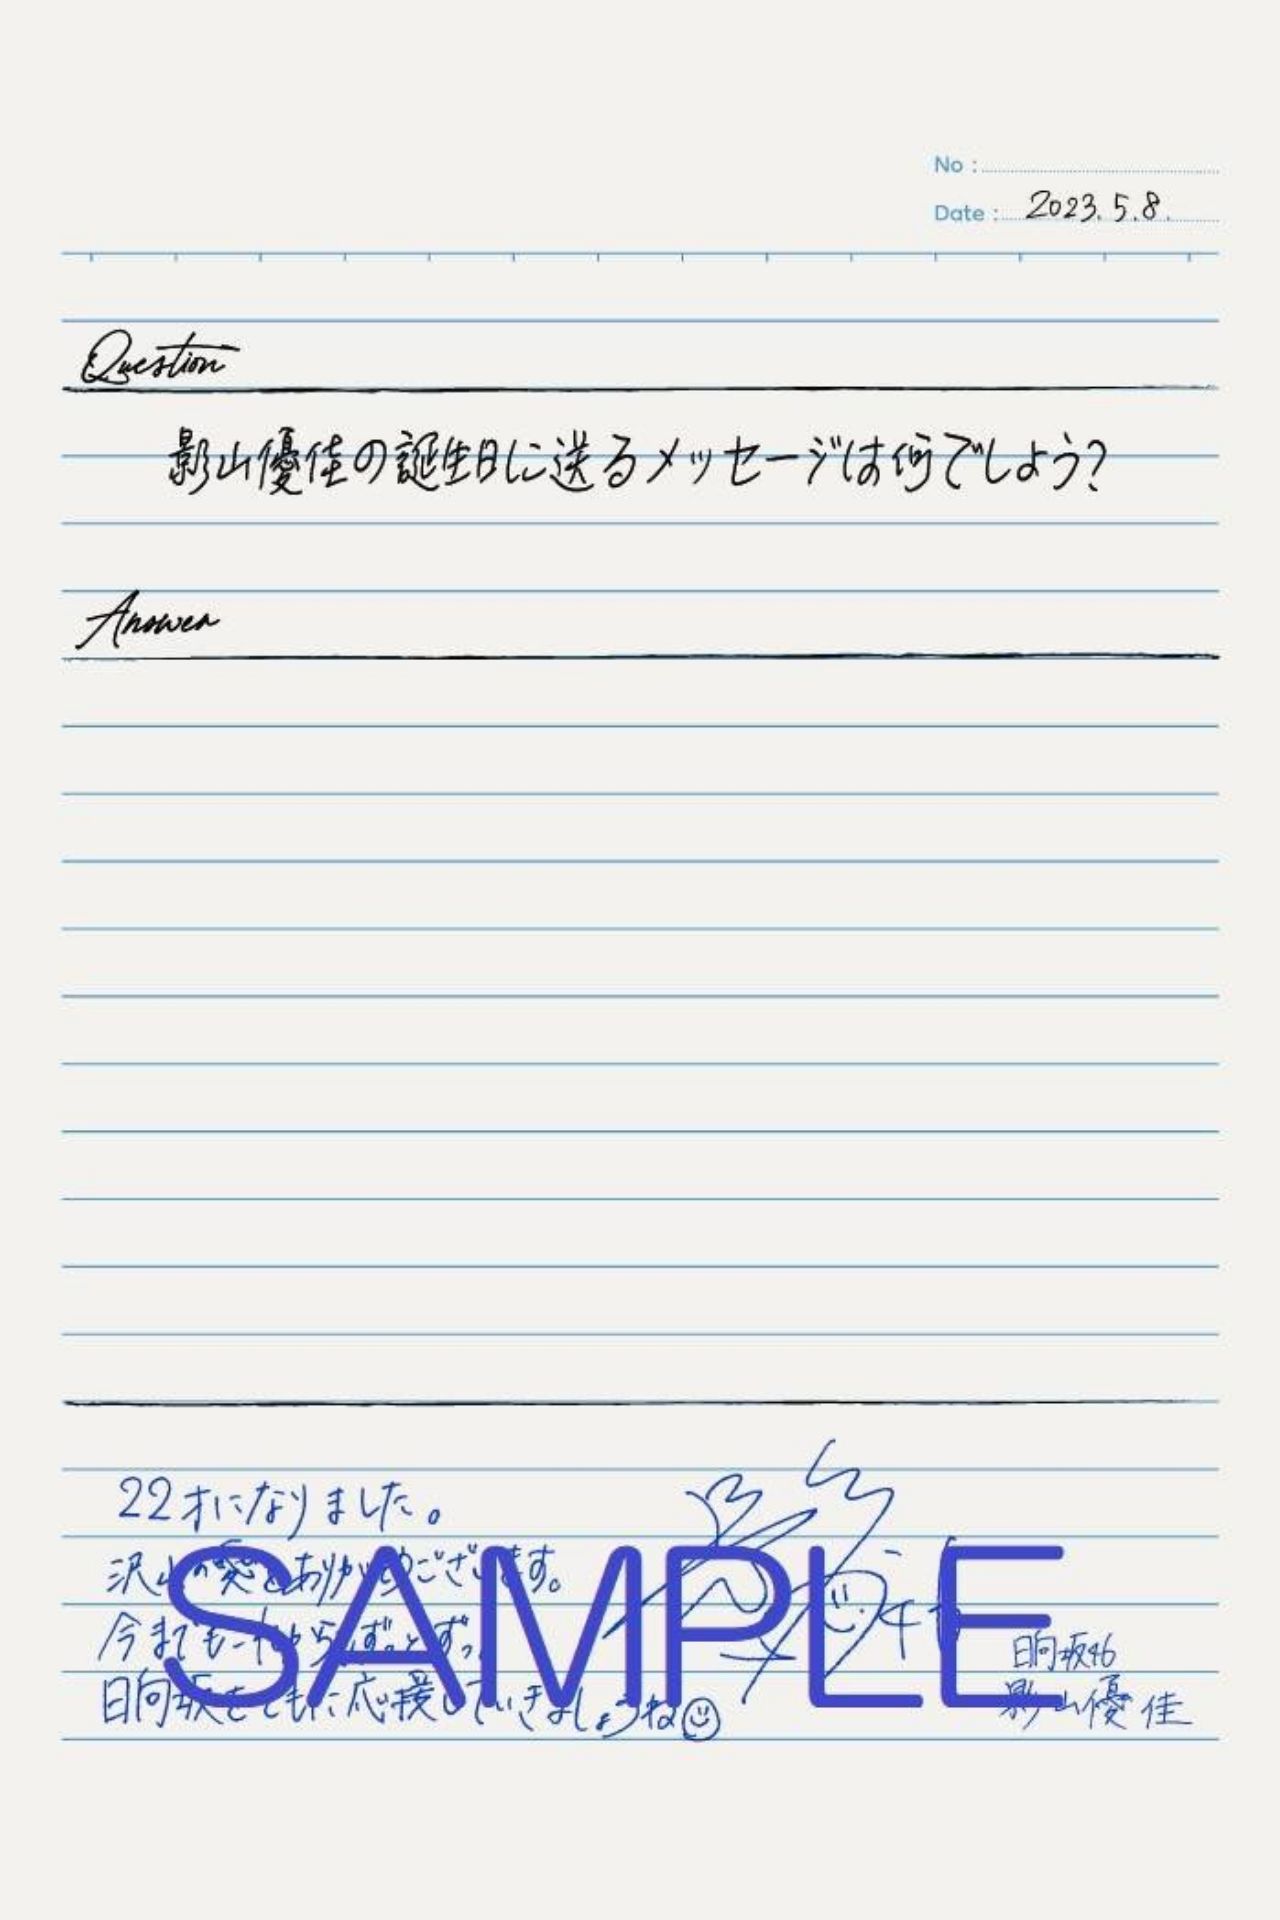 No :
Date : 2023.5.8.
Question
影山優佳の誕生日に送るメッセージは何でしょう?
Answer
22才になりました。
沢山の愛をありがとうございます。
今までもこれからもずっとずっと
日向坂をともに応援していきましょうね
SAMPLE
日向坂46
影山優佳